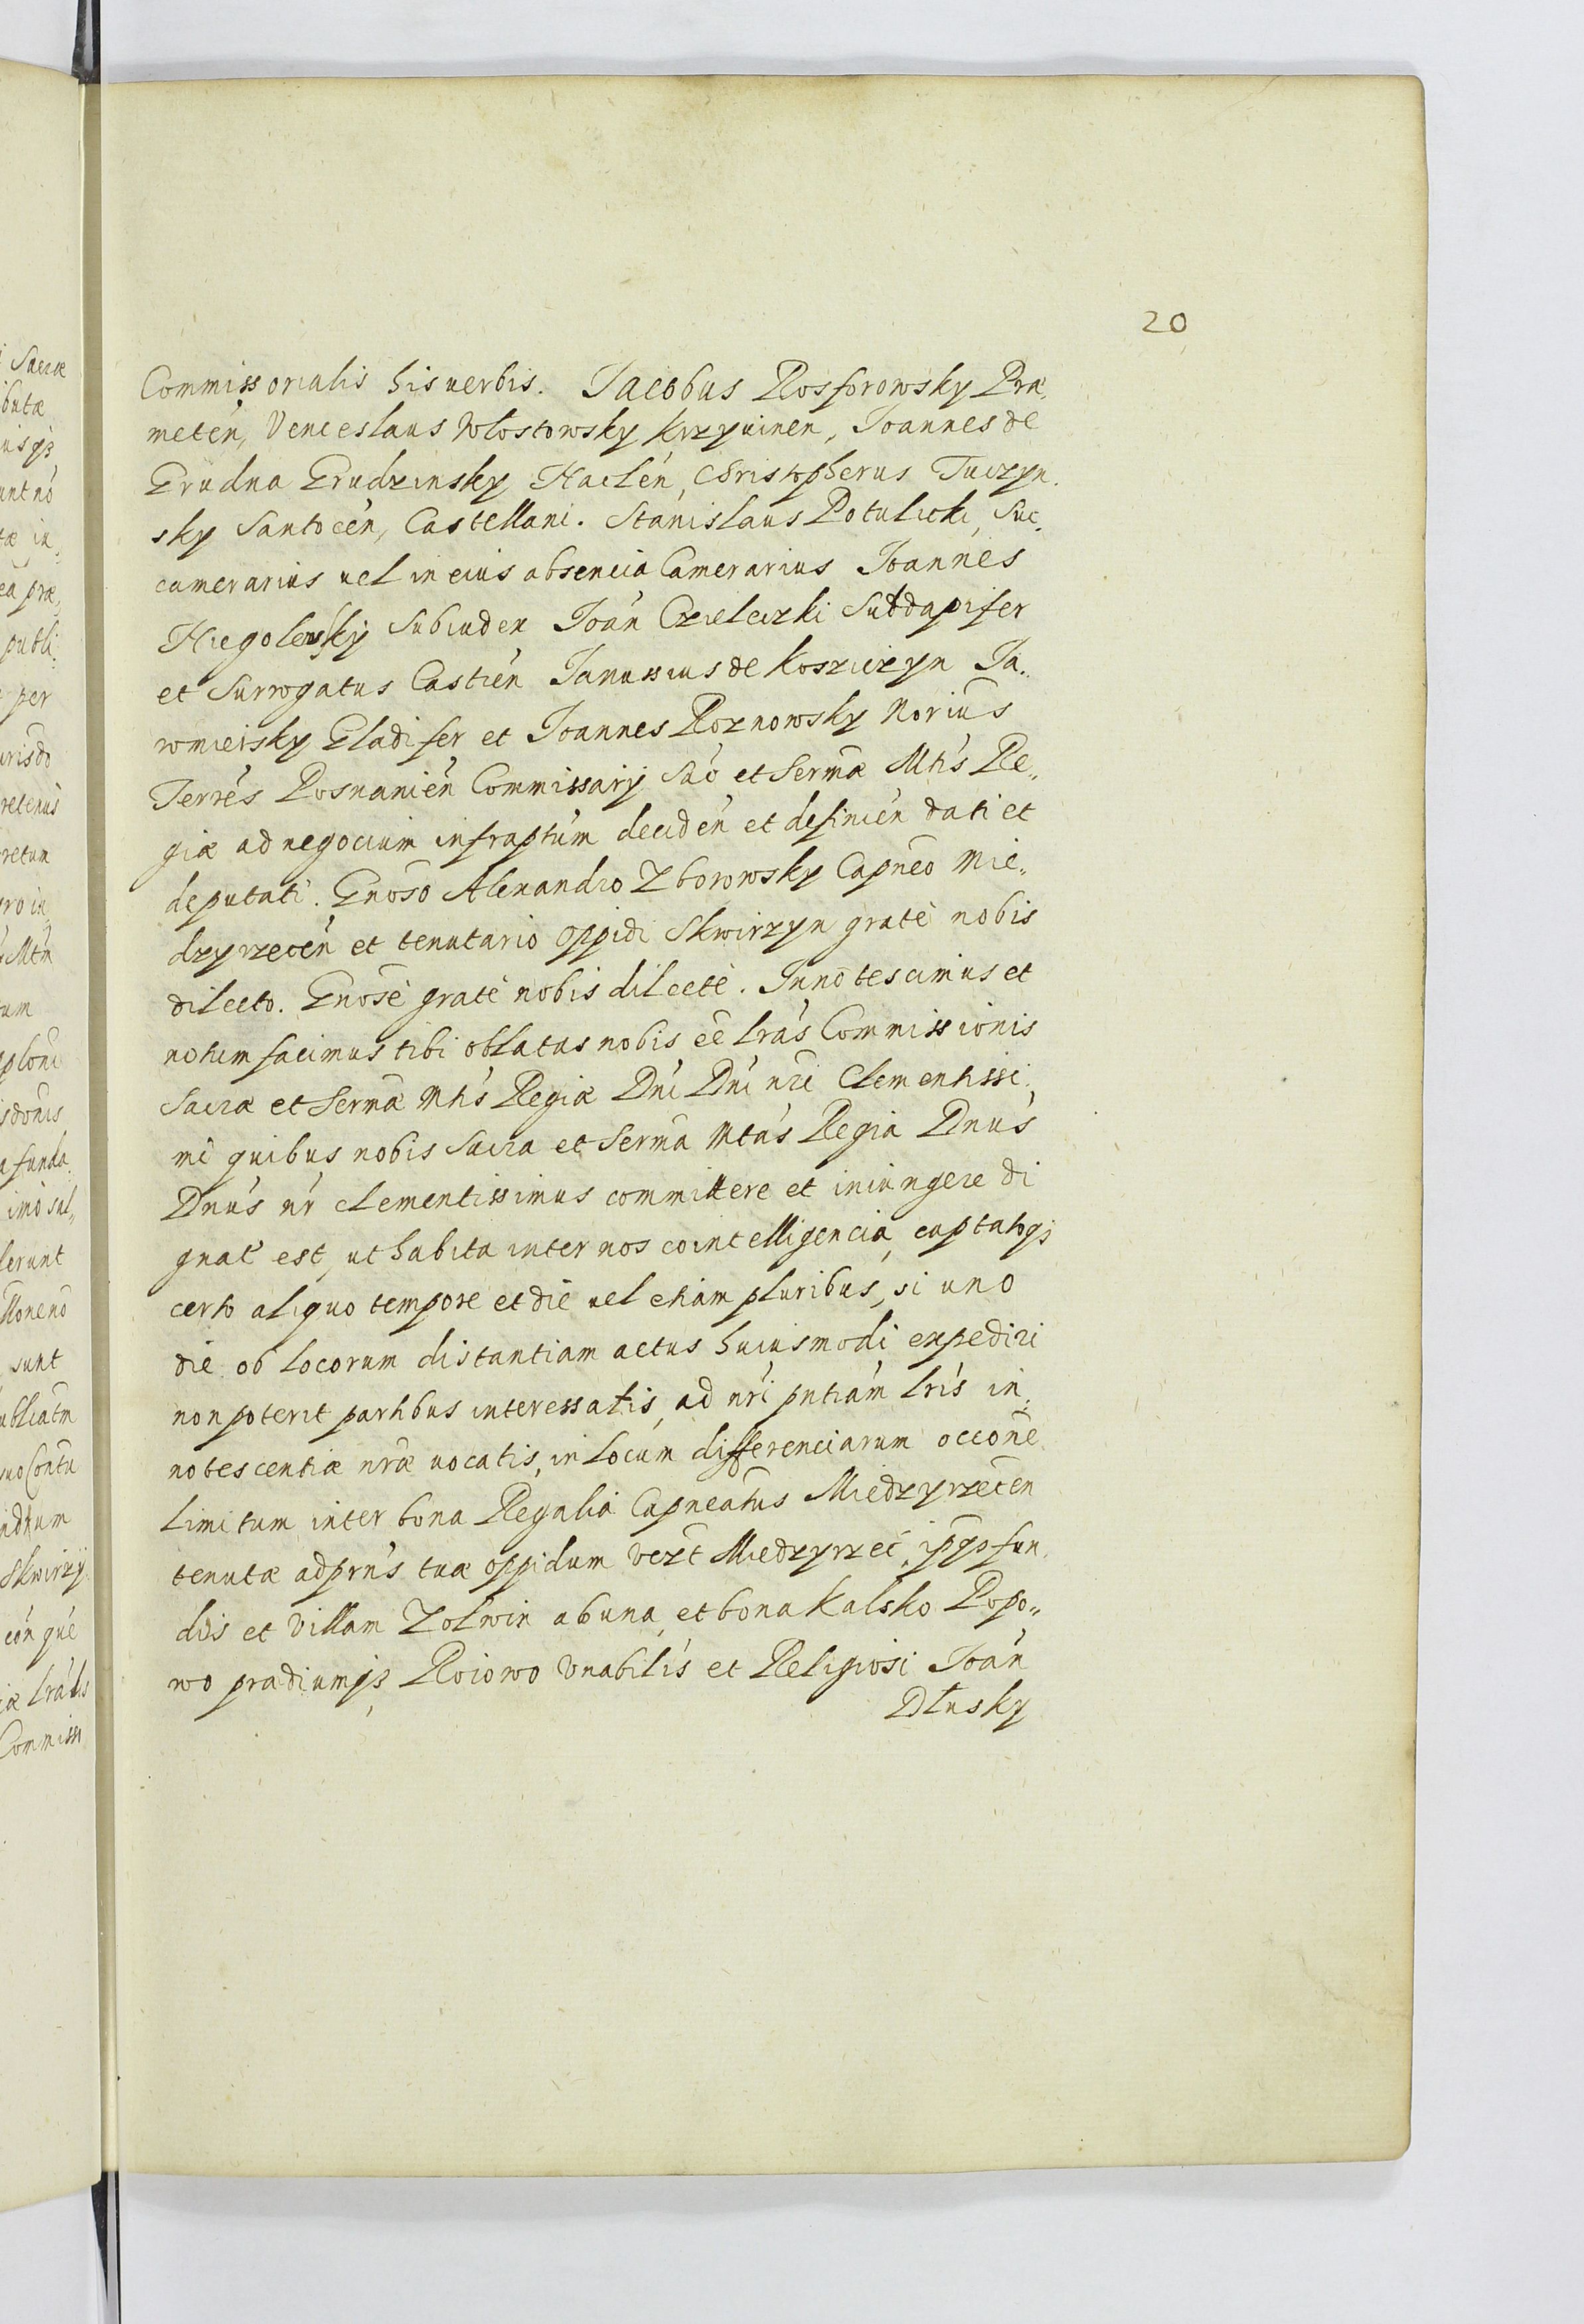 20
Commissorialis his uerbis. Jacobus Rosforowsky Præ,
metén, Venceslaus Wlostowsky Krzyuinen, Joannes de
Grudna Grudzinsky Naclén, Christopherus Tuczyn.
sky Santocén, Castellani. Stanislaus Potulicki, Suc.
camerarius uel in eius absencia Camerarius Joannes
Niegolewsky Subiudex Joan̄ Czieleczki Subdapifer
et Surrogatus Castién Janussius de Kosziczyn Ja..
wnieisky Gladifer et Joannes Roznowsky Norius
Terrés Posnanién Commissarij Sac̄ et Serm̄æ Mtis Re,,
giæ ad negocium infraptum deciden̄ et definien̄ dati et
deputati. Gnoso Alexandro Zborowsky Capneo Mie,,
dzyrzecén et tenutario oppidi Skwirzyn gratè nobis
dilecto. Gnosè gratè nobis dilecte. Innotescimus et
notum facimus tibi oblatas nobis ee lras Commissionis
Sacræ et Sermæ Mtis Regiæ Dni Dni nri Clementissi,
mi quibus nobis Sacra et Serma Mtas Regia Dnus
Dnus nr clementissimus committere et iniungere di
gnat est, ut habita inter nos cointelligencia, captatoq;
certo aliquo tempore et die uel etiam pluribus, si uno
die ob locorum distantiam actus huiusmodi expediri
non poterit partibus interessatis, ad nri pntiam lris in,
notescentiæ nræ uocatis, in locum differenciarum occone
limitum inter bona Regalia Capneatus Miedzyrzecen
tenutæ adprns tuæ oppidum vezt Miedzyrzec, ipsq; fun,
diis et Villam Zolwin ab una, et bona Kalsko Popo,,
wo prædiumq; Roiowo Vnabilis et Religiosi Joan̄
Dłusky